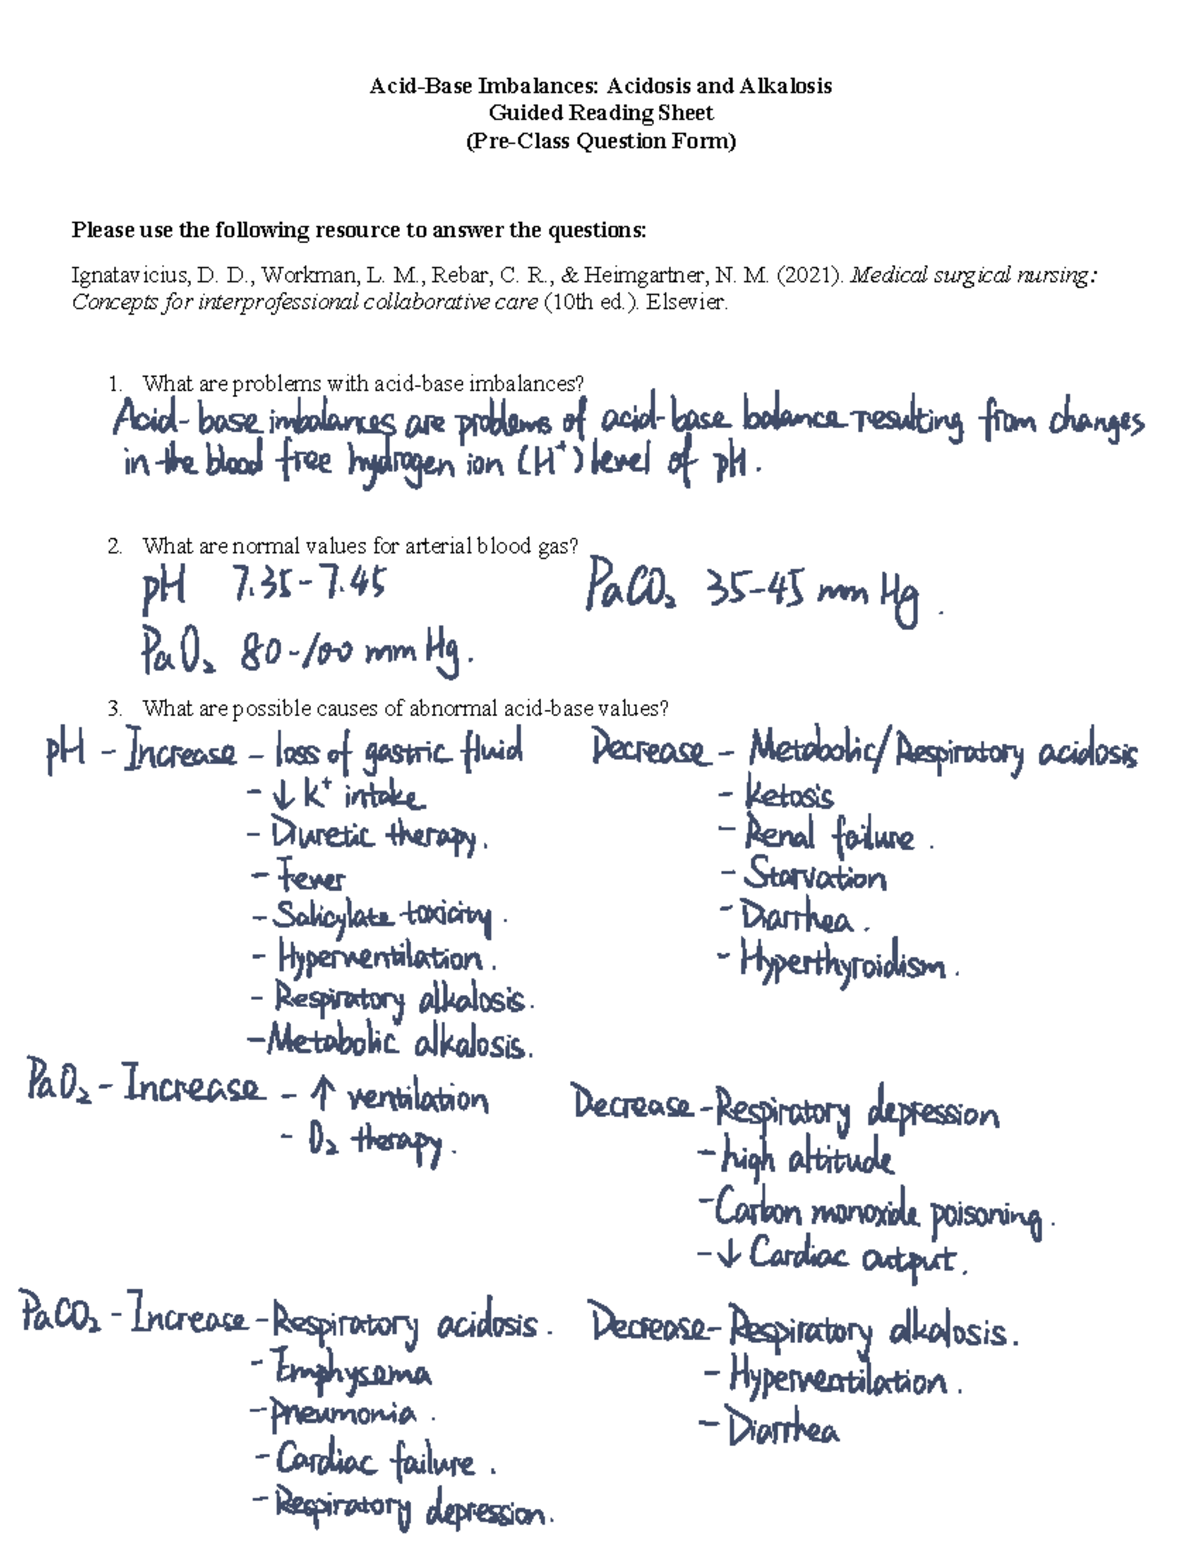 Acid-Base Imbalances: Acidosis and Alkalosis
Guided Reading Sheet
(Pre-Class Question Form)
Please use the following resource to answer the questions:
Ignatavicius, D. D., Workman, L. M., Rebar, C. R., & Heimgartner, N. M. (2021). Medical surgical nursing:
Concepts for interprofessional collaborative care (10th ed.). Elsevier.
1. What are problems with acid-base imbalances?
Acid-base imbalances are problems of acid-base balance resulting from changes
in the blood free hydrogen ion (H⁺) level of pH.
2. What are normal values for arterial blood gas?
pH 7.35-7.45
PaCO₂ 35-45 mm Hg.
PaO₂ 80-100 mm Hg.
3. What are possible causes of abnormal acid-base values?
pH - Increase - loss of gastric fluid
- ↓ K⁺ intake
- Diuretic therapy.
- Fever
- Salicylate toxicity.
- Hyperventilation.
- Respiratory alkalosis.
- Metabolic alkalosis.
Decrease - Metabolic/Respiratory acidosis
- Ketosis
- Renal failure.
- Starvation
- Diarrhea.
- Hyperthyroidism.
PaO₂ - Increase - ↑ ventilation
- O₂ therapy.
Decrease - Respiratory depression
- high altitude
- Carbon monoxide poisoning.
- ↓ Cardiac output.
PaCO₂ - Increase - Respiratory acidosis.
- Emphysema
- Pneumonia.
- Cardiac failure.
- Respiratory depression.
Decrease - Respiratory alkalosis.
- Hyperventilation.
- Diarrhea